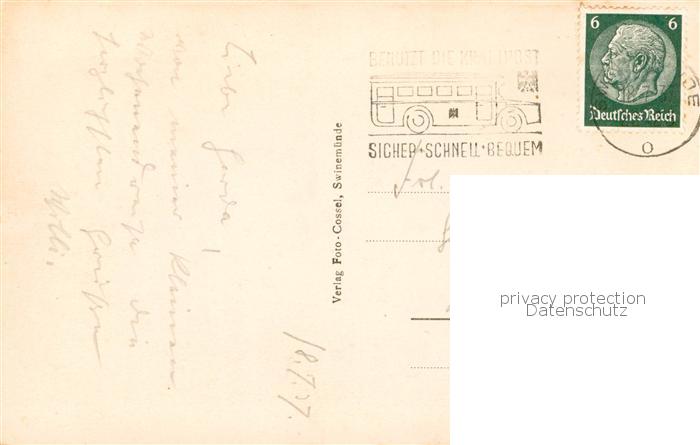 Liebe Gerda!
von meiner kleinen
Wochenendreise die
herzlichsten Grüße
Willi.
18.7.37.
Verlag Foto-Cossel, Swinemünde
BENUTZT DIE KRAFTPOST
SICHER·SCHNELL·BEQUEM
6 6
Deutsches Reich
Frl.
privacy protection
Datenschutz